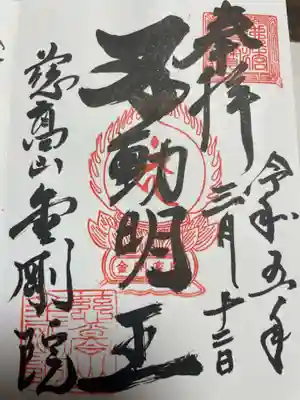 奉拝
令和五年
三月十二日
不動明王
慈高山金剛院